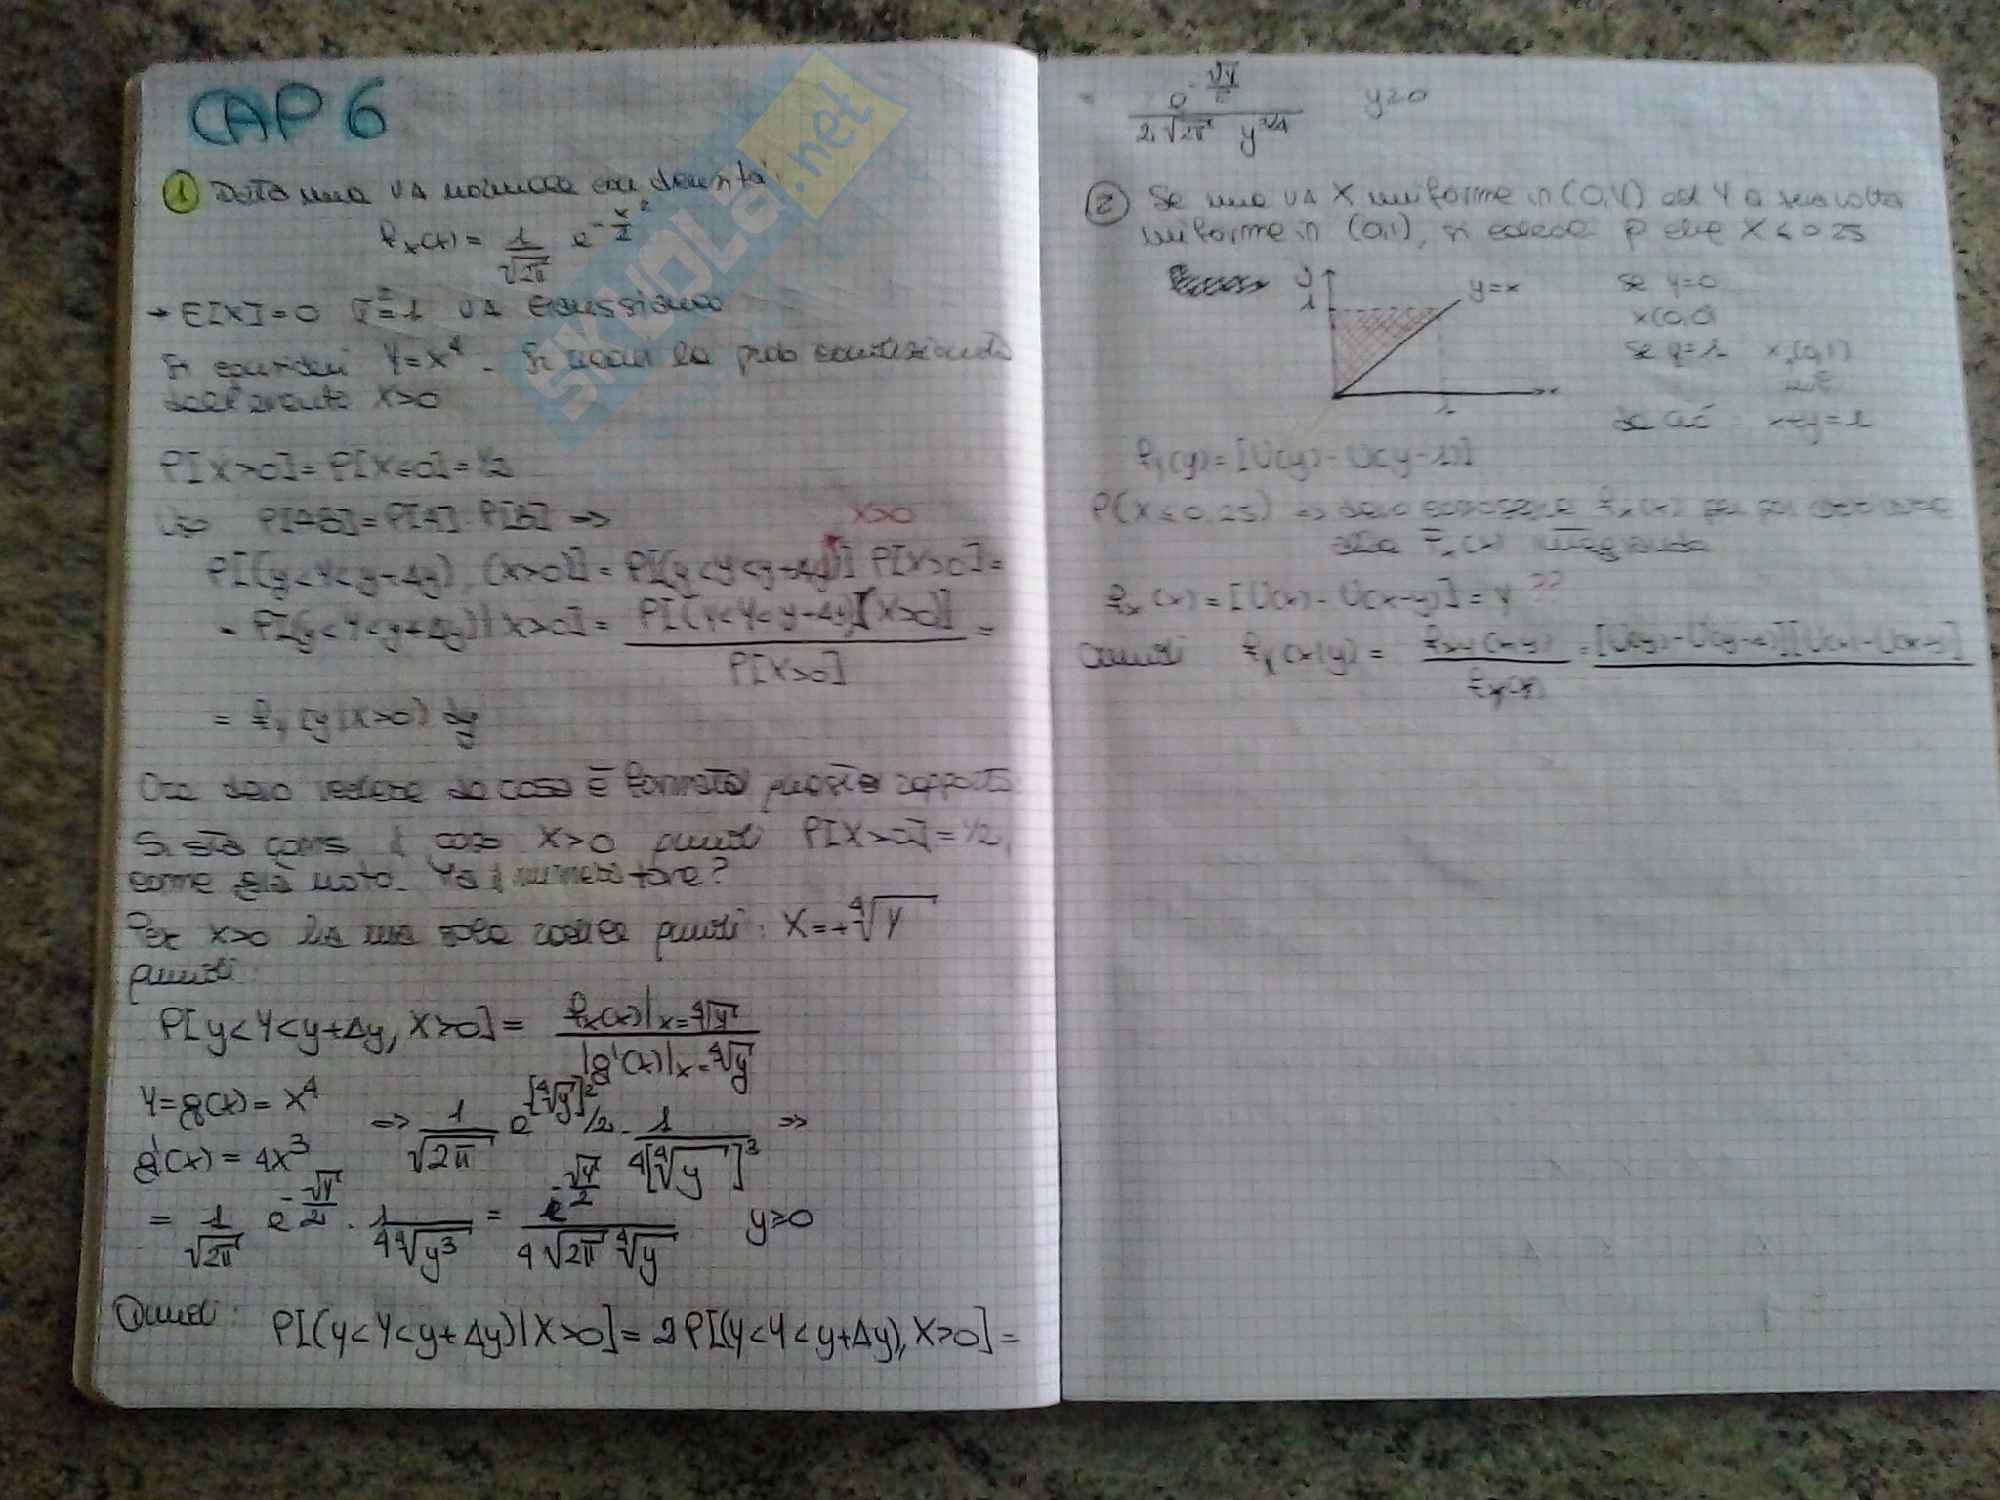 CAP 6
① Data una VA normale con densità:
fx(x) = 1/√2π e^-x²/2
→ E[X]=0 σ²=1 VA Gaussiana
Si consideri Y=X⁴. Si la prob condizionata
dell'evento X>0
P[X>0]=P[X≤0]=1/2
P[AB]=P[A]·P[B] =>
X>0
P[(y<Y<y+Δy), (X>0)] = P[(y<Y<y+Δy)] P[X>0] =
= P[(y<Y<y+Δy)|X>0] = P[(y<Y<y+Δy)(X>0)] / P[X>0] =
= fy [y|X>0) dy
Ora devo vedere da cosa è formato questo rapporto
Si sta cons il caso X>0 quindi P[X>0]=1/2,
come già noto. Ma il numeratore?
Per X>0 ho una sola radice quindi: X=+∜Y
quindi:
P[y<Y<y+Δy, X>0] = fx(x)|x=∜y / |g'(x)|x=∜y
Y=g(x)= X⁴ => 1/√2π e^-[∜y]²/2 · 1/4[∜y]³ =>
g'(x)= 4X³
= 1/√2π e^-√y/2 · 1/4∜y³ = e^-√y/2 / 4√2π ∜y y≥0
Quindi: P[(y<Y<y+Δy)|X>0] = 2P[(y<Y<y+Δy), X>0] =
= e^-√y/2 / 2√2π y^3/4 y≥0
② Se una VA X uniforme in (0,Y) ed Y a sua volta
uniforme in (0,1), si calcoli p che X≤0.25
y
1
y=x
x
1
se y=0
x(0,0)
se y=1 x(0,1)
unif
da cui x+y=1
fy(y)=[U(y)-U(y-1)]
P(X≤0,25) => devo conoscere fx(x) per poi
alla Fx(x) integrando
fx(x)=[U(x)-U(x-y)]=Y ??
Quindi fy(x|y) = fxy(x,y) / = [U(y)-U(y-1)][U(x)-U(x-y)]
SKUOLA.net